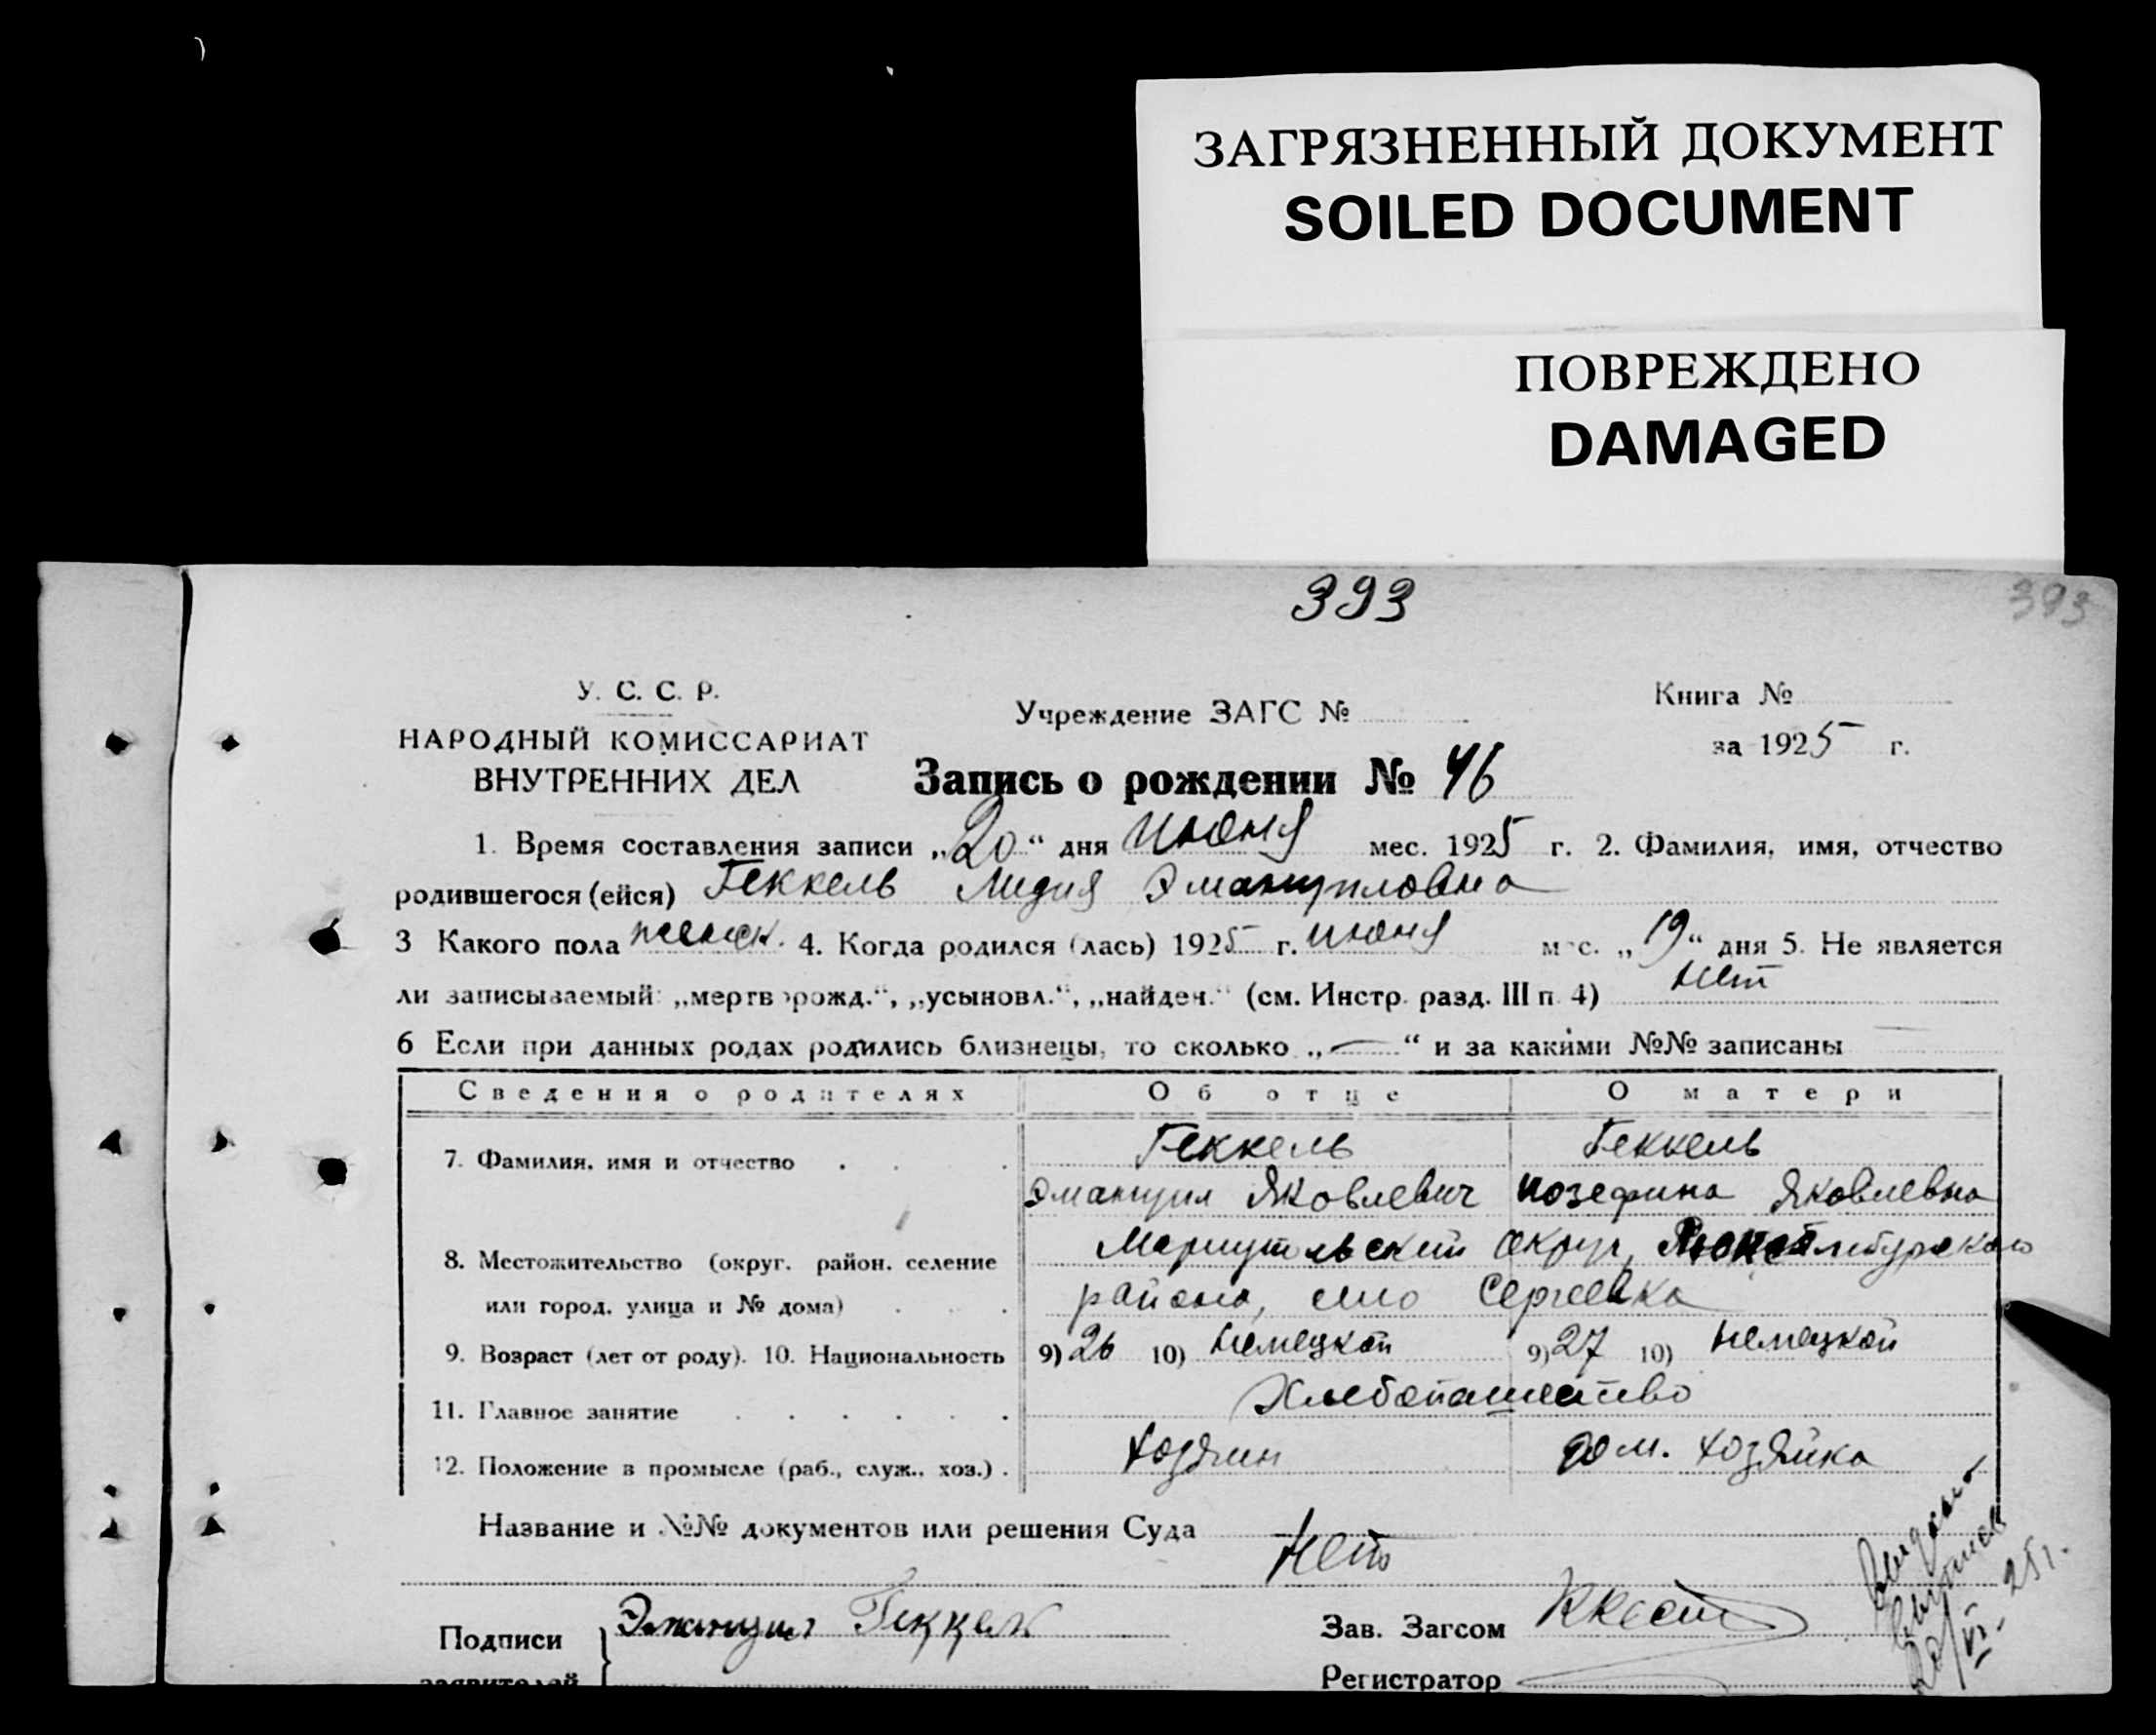 ЗАГРЯЗНЕННЫЙ ДОКУМЕНТ
SOILED DOCUMENT
ПОВРЕЖДЕНО
DAMAGED
393
393
У. С. С. Р.
НАРОДНЫЙ КОМИССАРИАТ
ВНУТРЕННИХ ДЕЛ
Учреждение ЗАГС №
Книга №
за 1925 г.
Запись о рождении № 46
1. Время составления записи „20“ дня июня мес. 1925 г. 2. Фамилия, имя, отчество
родившегося (ейся) Геккель Лидия Эмануиловна
3 Какого пола женск. 4. Когда родился (лась) 1925 г. июня мес. „19“ дня 5. Не является
ли записываемый: „мертворожд.“, „усыновл.“, „найден.“ (см. Инстр. разд. III п. 4) нет
6 Если при данных родах родились близнецы, то сколько „—“ и за какими №№ записаны —
Сведения о родителях Об отце О матери
7. Фамилия, имя и отчество Геккель Геккель
Эмануил Яковлевич Иозефина Яковлевна
8. Местожительство (округ, район, селение Мариупольский округ,
или город, улица и № дома) района, село Сергеевка
9. Возраст (лет от роду). 10. Национальность 9) 26 10) немецкой 9) 27 10) немецкой
11. Главное занятие Хлебопашество
12. Положение в промысле (раб., служ., хоз.) хозяин дом. хозяйка
Название и №№ документов или решения Суда нет
Подписи Эмануил Геккель
заявителей
Зав. Загсом
Регистратор
выписка
20/VI-25 г.